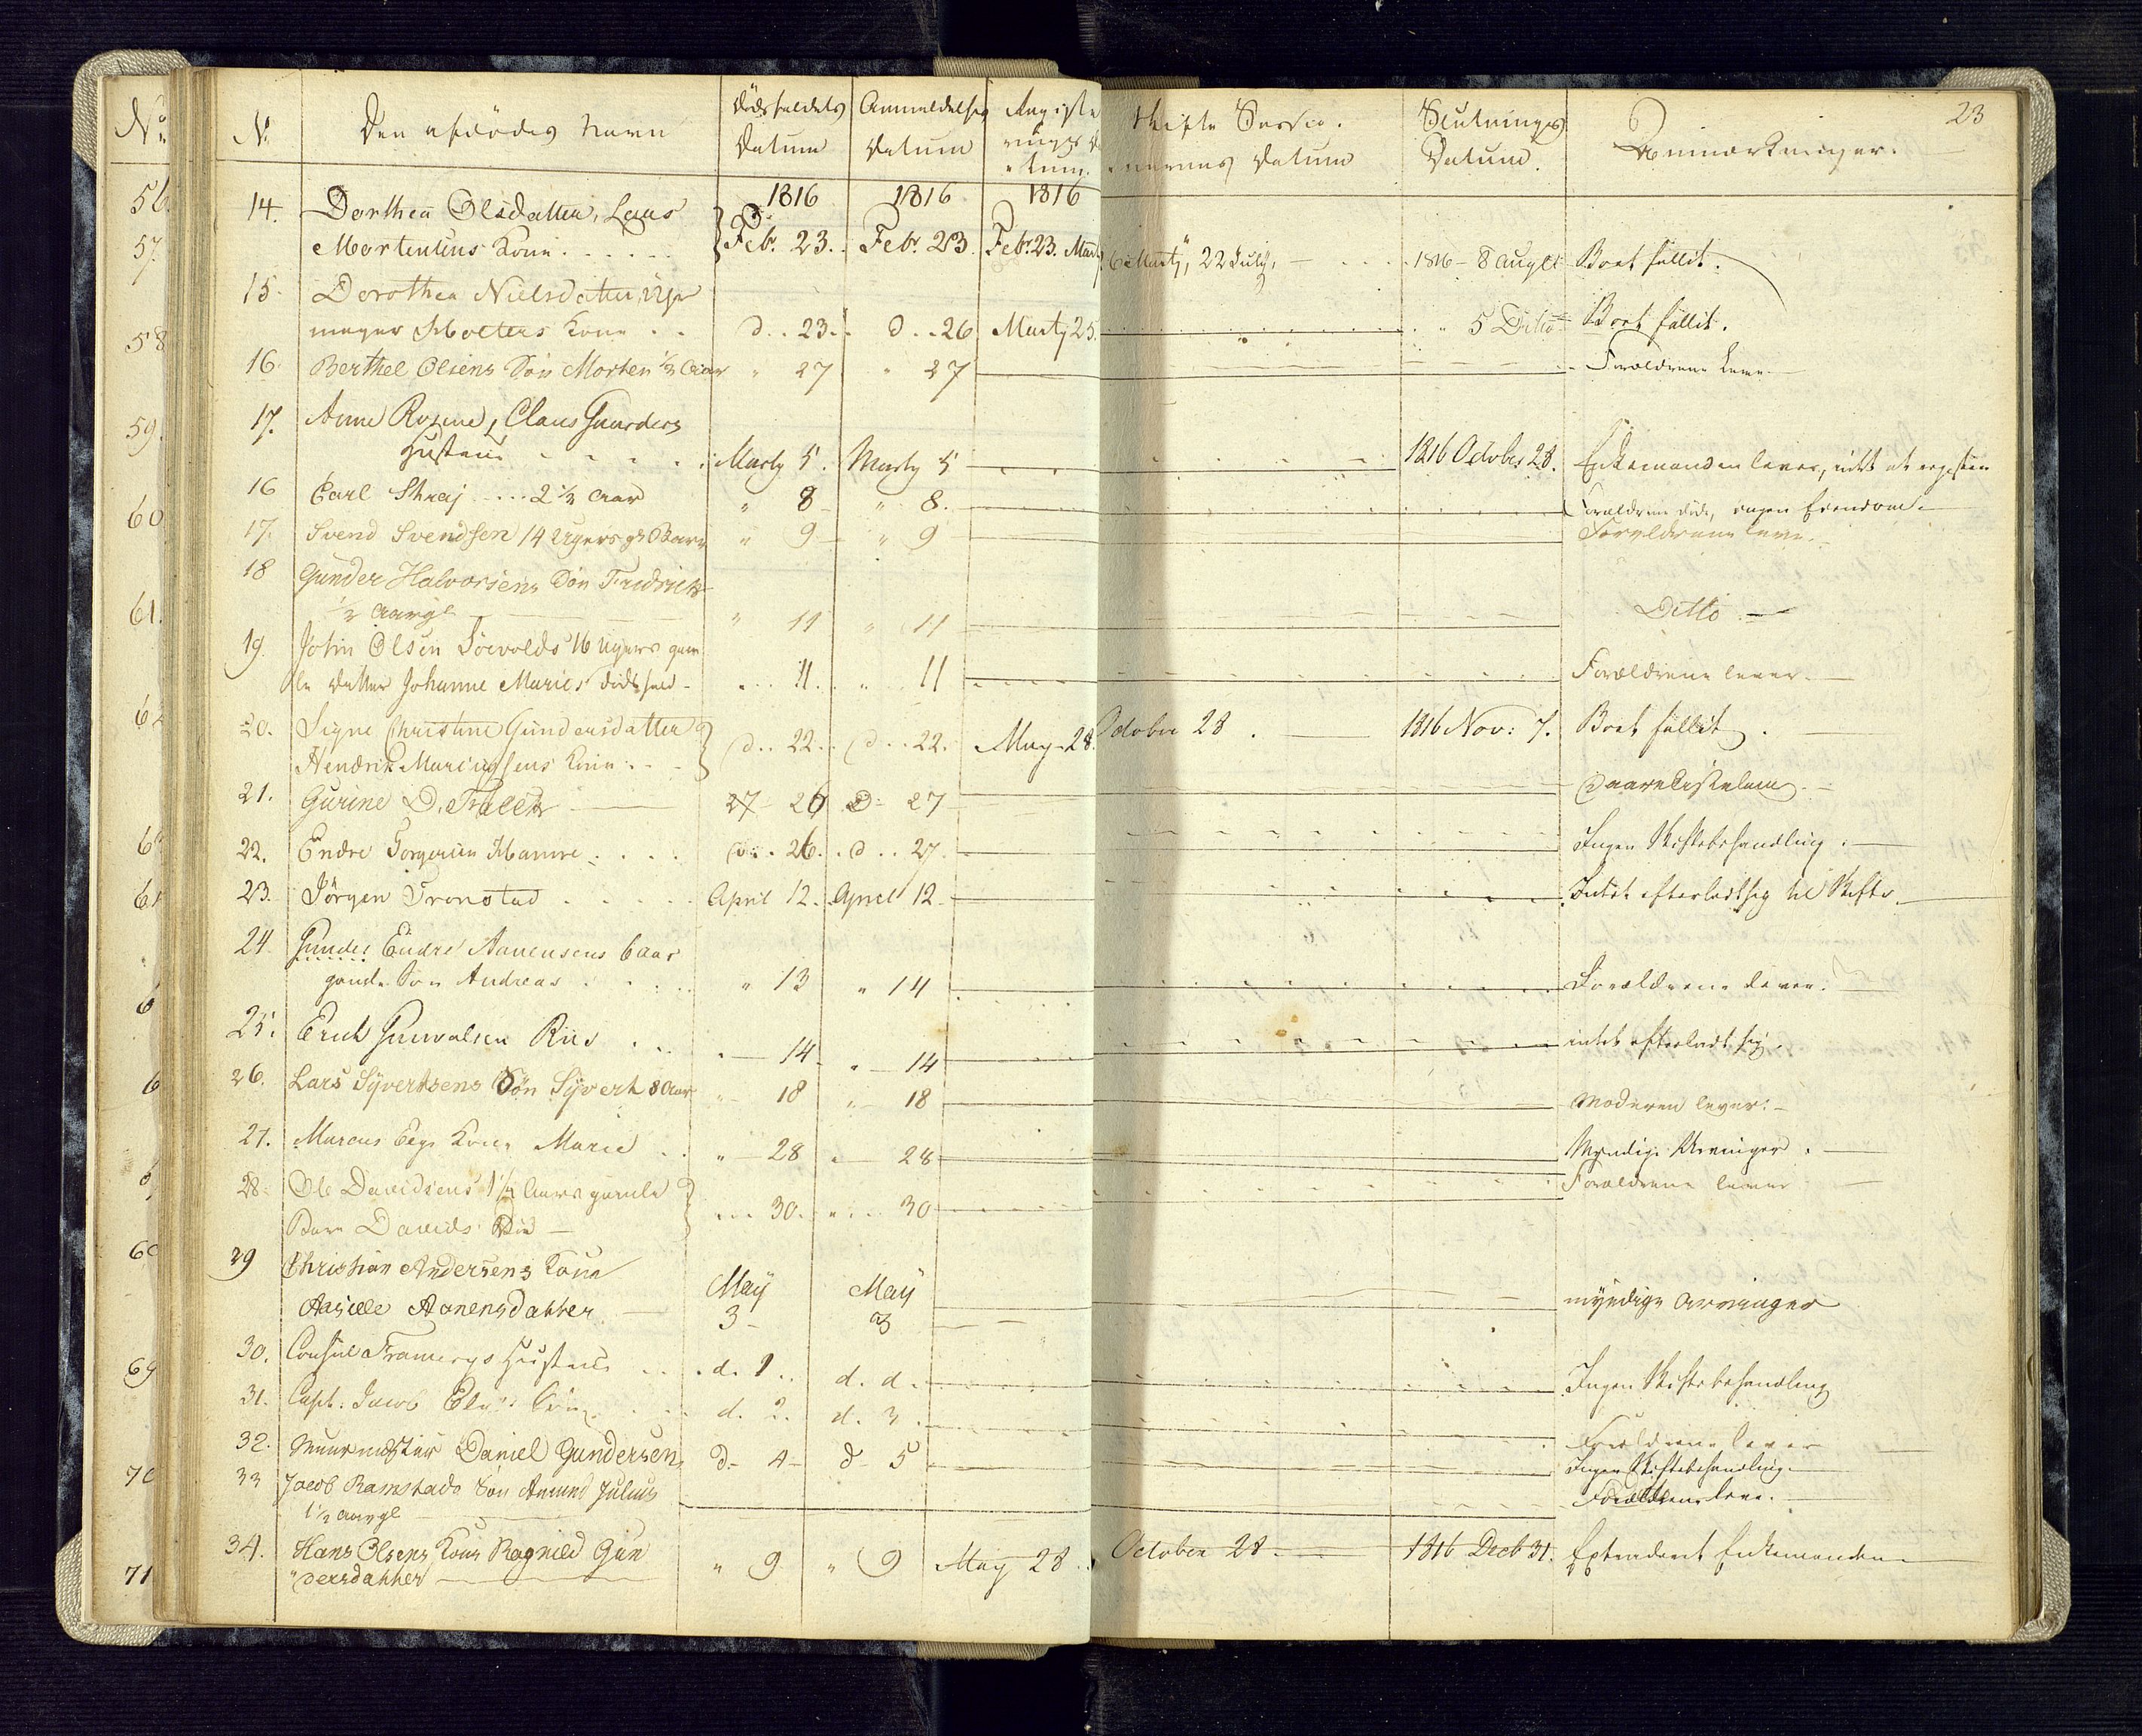 23
No
No Den afdødes Navn Dødsfaldets Datum Anmeldelses Datum Registe rings Da tum. Skifte Sessio nernes Datum Slutnings Datum Anmærkninger.
1816 1816 1816
14. Dorthea Olsdatter, Lars
Mortensens Kone Febr. 23. Febr. 23. Febr. 23. 22 July, 1816 - 8 Augst Boet fallit.
15. Dorothea Nielsdatter,
mager Holters Kone d. 23. d. 26 Marty 25. 5 Ditto Boet fallit.
16. Berthel Olsens Søn Morten 1/2 Aar " 27 " 27 Forældrene leve
17. Anne Rosine, Claus Gaarders
Hustrue Marty 5. Marty 5 1816 October 28. Enkemanden lever, intet at registere
16 Carl Straj 2 1/2 Aar " 8 " 8. Forældrene døde, ingen Eiendom.
17. Svend Svendsen 14 Ugers gl Barn " 9 " 9 Forældrene leve.
18 Gunder Halvorsens Søn Fredrich
1/2 Aargl. " 11 " 11 Ditto
19. John Olsen Sørvolds 16 Ugers gam
le Datter Johanne Maries Dødsfald 11. " 11 Forældrene lever.
20. Signe Christine Gundersdatter
Hendrik Marcussens Kone d. 22. d. 22. May 28. October 28 1816 Nov: 7. Boet fallit.
21. Gurine D. 27 26 D: 27
22. Endre Torgersen d. 26. d. 27. Ingen Skiftebehandling.
23. Jørgen Tronstad April 12. April 12. Intet efterladt sig til Skifte.
24. Gunder Endre Aanensens 6 Aar
gamle Søn Andreas " 13 " 14 Forældrene lever.
25. Erich Gunvalsen Riis 14 " 14 intet efterladt sig.
26. Lars Syvertsens Søn Syvert 8 Aar 18 " 18 Moderen lever.
27. Marcus Kone Marie " 28 " 28 Myndige Arvinger.
28. Ole Davidsens 1 1/2 Aars gamle
Barn Davids Død 30. " 30 Forældrene lever
29 Christian Andersens Kone May May
Aasille Aanensdatter 3 3 myndige Arvinger
30. Consul Framerys Hustrue d. 1. d. d. Ingen Skiftebehandling
31. Capt. Jacob Søn d. 2. d. 3. Forældrene lever
32. Muurmester Daniel Gundersen d 4 d 5 Ingen Skiftebehandling
33 Jacob Ramstads Søn Amund Julius
1 1/2 Aargl Forældrene leve.
34. Hans Olsens Kone Ragnild Gun
dersdatter " 9 " 9 May 28 October 28 1816 Decb 31. Extraderet Enkemanden
56.
57.
58
59.
60
61.
62
69
70
71